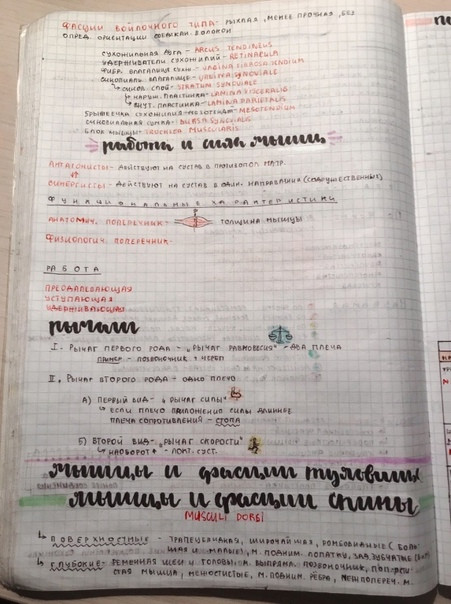 Фасции войлочного типа- рыхлая, менее прочная, без
опред. ориентации волокон
сухожильная дуга - arcus tendineus
удерживатели сухожилий - retinacula
фибр. влагалища сухож. - vagina fibrosa tendinum
синовиальн. влагалище - vagina synoviale
↳ синов. слой - stratum synoviale
↳ наруж. пластинка - lamina
↳ внут. пластинка - lamina parietalis
брыжейка сухожилия - мезотендий - mesotendium
синовиальная сумка - bursa synovialis
блок мышцы - trochlea muscularis
работа и сила мышц
Антагонисты - действуют на сустав в противопол. напр.
Синергисты - действуют на сустав в один. направлении (содружественные)
Функциональные характеристики
Анатомич. поперечник - толщина мышцы
Физиологич. поперечник -
Работа
преодолевающая
уступающая
удерживающая
рычаги
I. Рычаг первого рода - "рычаг равновесия" - два плеча
пример - позвоночник + череп
II. Рычаг второго рода - одно плечо
А) первый вид - "рычаг силы"
↳ если плечо приложения силы длиннее
плеча сопротивления - стопа
Б) второй вид - "рычаг скорости"
↳ наоборот - локт. суст.
мышцы и фасции туловища
мышцы и фасции спины
musculi dorsi
↳ поверхностные - трапециевидная, широчайшая, ромбовидные (боль
шая и малые), м. подним. лопатку, зад. зубчатые
↳ глубокие - ременная шеи и головы, м. выпрямл. позвоночник, поперечноости
стая мышца, межостистые, м. подним. рёбра, межпопереч. м.